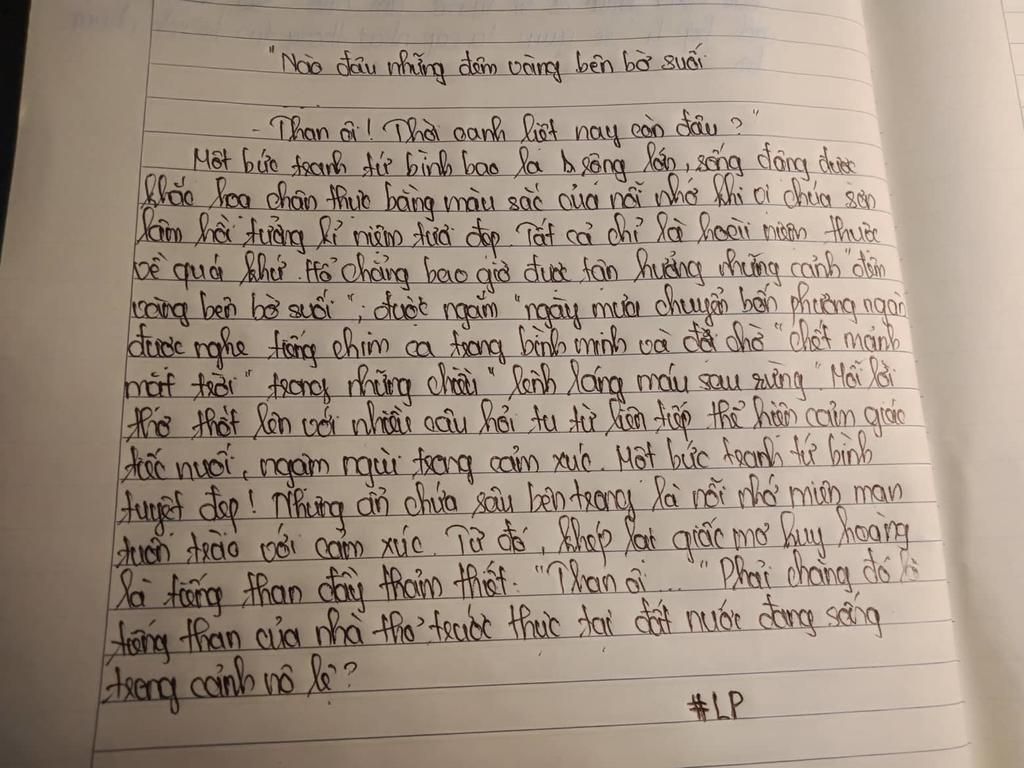 "Nào đâu những đêm vàng bên bờ suối
- Than ôi! Thời oanh liệt nay còn đâu?"
Một bức tranh tứ bình bao la rộng lớn, sống động được
khắc họa chân thực bằng màu sắc của nỗi nhớ khi vị chúa sơn
lâm hồi tưởng kỉ niệm tươi đẹp. Tất cả chỉ là hoài niệm thuộc
về quá khứ. Hổ chẳng bao giờ được tận hưởng những cảnh "đêm
vàng bên bờ suối", được ngắm "ngày mưa chuyển bốn phương ngàn
được nghe tiếng chim ca trong bình minh và đợi chờ "chết mảnh
mặt trời" trong những chiều "lênh láng máu sau rừng". Mỗi lời
thơ thốt lên với nhiều câu hỏi tu từ liên tiếp thể hiện cảm giác
tiếc nuối, ngậm ngùi trong cảm xúc. Một bức tranh tứ bình
tuyệt đẹp! Nhưng ẩn chứa sâu bên trong là nỗi nhớ miên man
tuôn trào với cảm xúc. Từ đó, khép lại giấc mơ huy hoàng
là tiếng than đầy thảm thiết: "Than ôi...." Phải chăng đó là
tiếng than của nhà thơ trước thực tại đất nước đang sống
trong cảnh nô lệ?
#LP